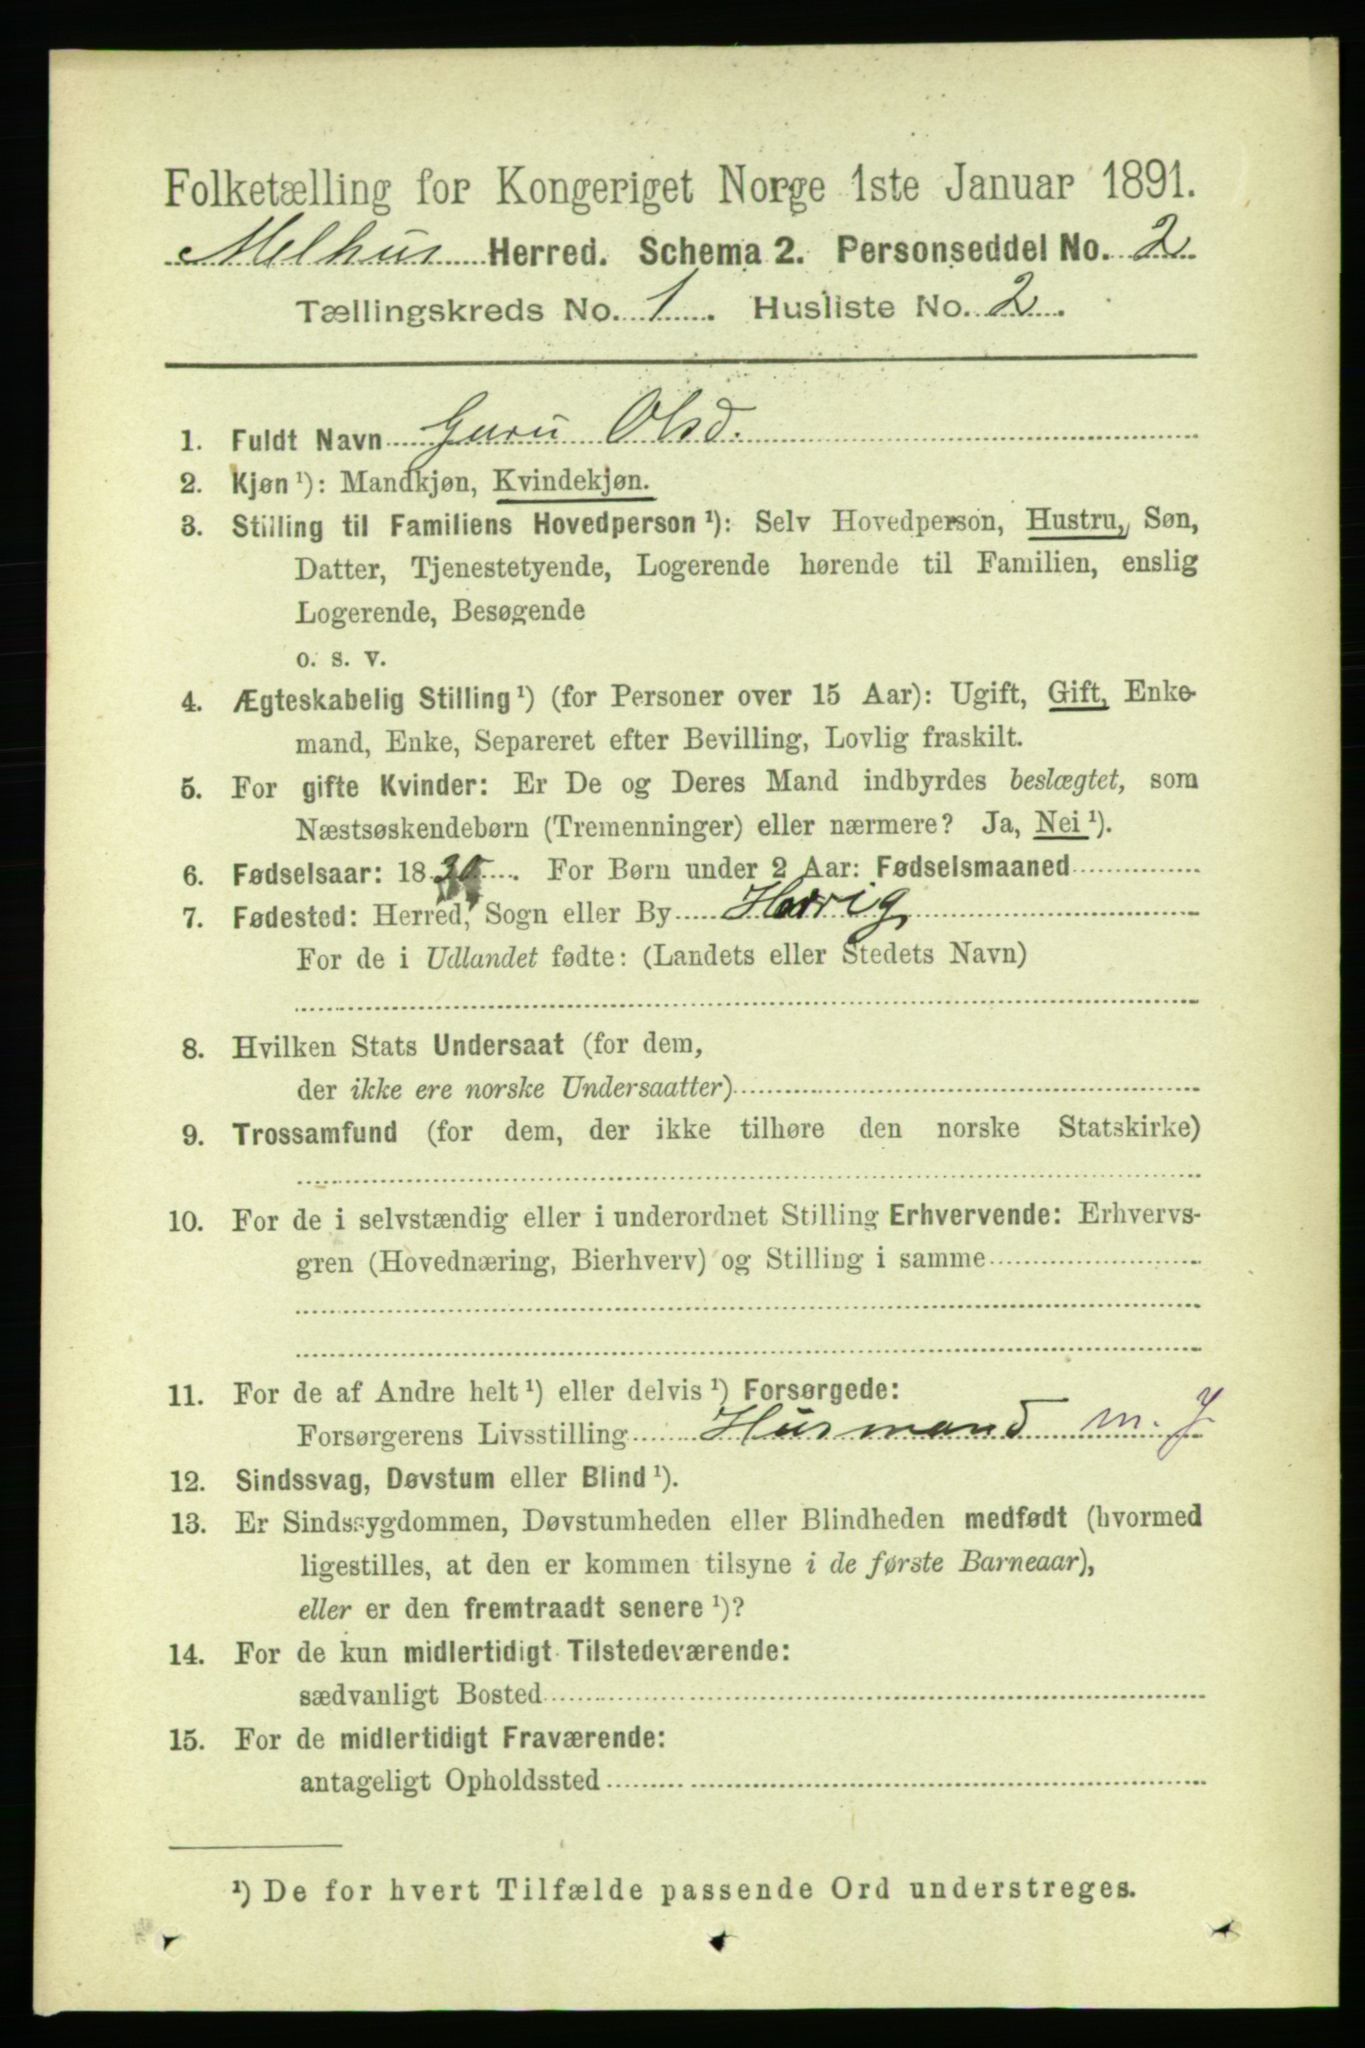 Folketælling for Kongeriget Norge 1ste Januar 1891.
Melhus Herred. Schema 2. Personseddel No. 2
Tællingskreds No. 1. Husliste No. 2.
1. Fuldt Navn Guru Olsd.
2. Kjøn ¹): Mandkjøn, Kvindekjøn.
3. Stilling til Familiens Hovedperson ¹): Selv Hovedperson, Hustru, Søn,
Datter, Tjenestetyende, Logerende hørende til Familien, enslig
Logerende, Besøgende
o. s. v.
4. Ægteskabelig Stilling ¹) (for Personer over 15 Aar): Ugift, Gift, Enke-
mand, Enke, Separeret efter Bevilling, Lovlig fraskilt.
5. For gifte Kvinder: Er De og Deres Mand indbyrdes beslægtet, som
Næstsøskendebørn (Tremenninger) eller nærmere? Ja, Nei ¹).
6. Fødselsaar: 18 . For Børn under 2 Aar: Fødselsmaaned
7. Fødested: Herred, Sogn eller By Horrig
For de i Udlandet fødte: (Landets eller Stedets Navn)
8. Hvilken Stats Undersaat (for dem,
der ikke ere norske Undersaatter)
9. Trossamfund (for dem, der ikke tilhøre den norske Statskirke)
10. For de i selvstændig eller i underordnet Stilling Erhvervende: Erhvervs-
gren (Hovednæring, Bierhverv) og Stilling i samme
11. For de af Andre helt ¹) eller delvis ¹) Forsørgede:
Forsørgerens Livsstilling Husmand m. J
12. Sindssvag, Døvstum eller Blind ¹).
13. Er Sindssygdommen, Døvstumheden eller Blindheden medfødt (hvormed
ligestilles, at den er kommen tilsyne i de første Barneaar),
eller er den fremtraadt senere ¹)?
14. For de kun midlertidigt Tilstedeværende:
sædvanligt Bosted
15. For de midlertidigt Fraværende:
antageligt Opholdssted
¹) De for hvert Tilfælde passende Ord understreges.